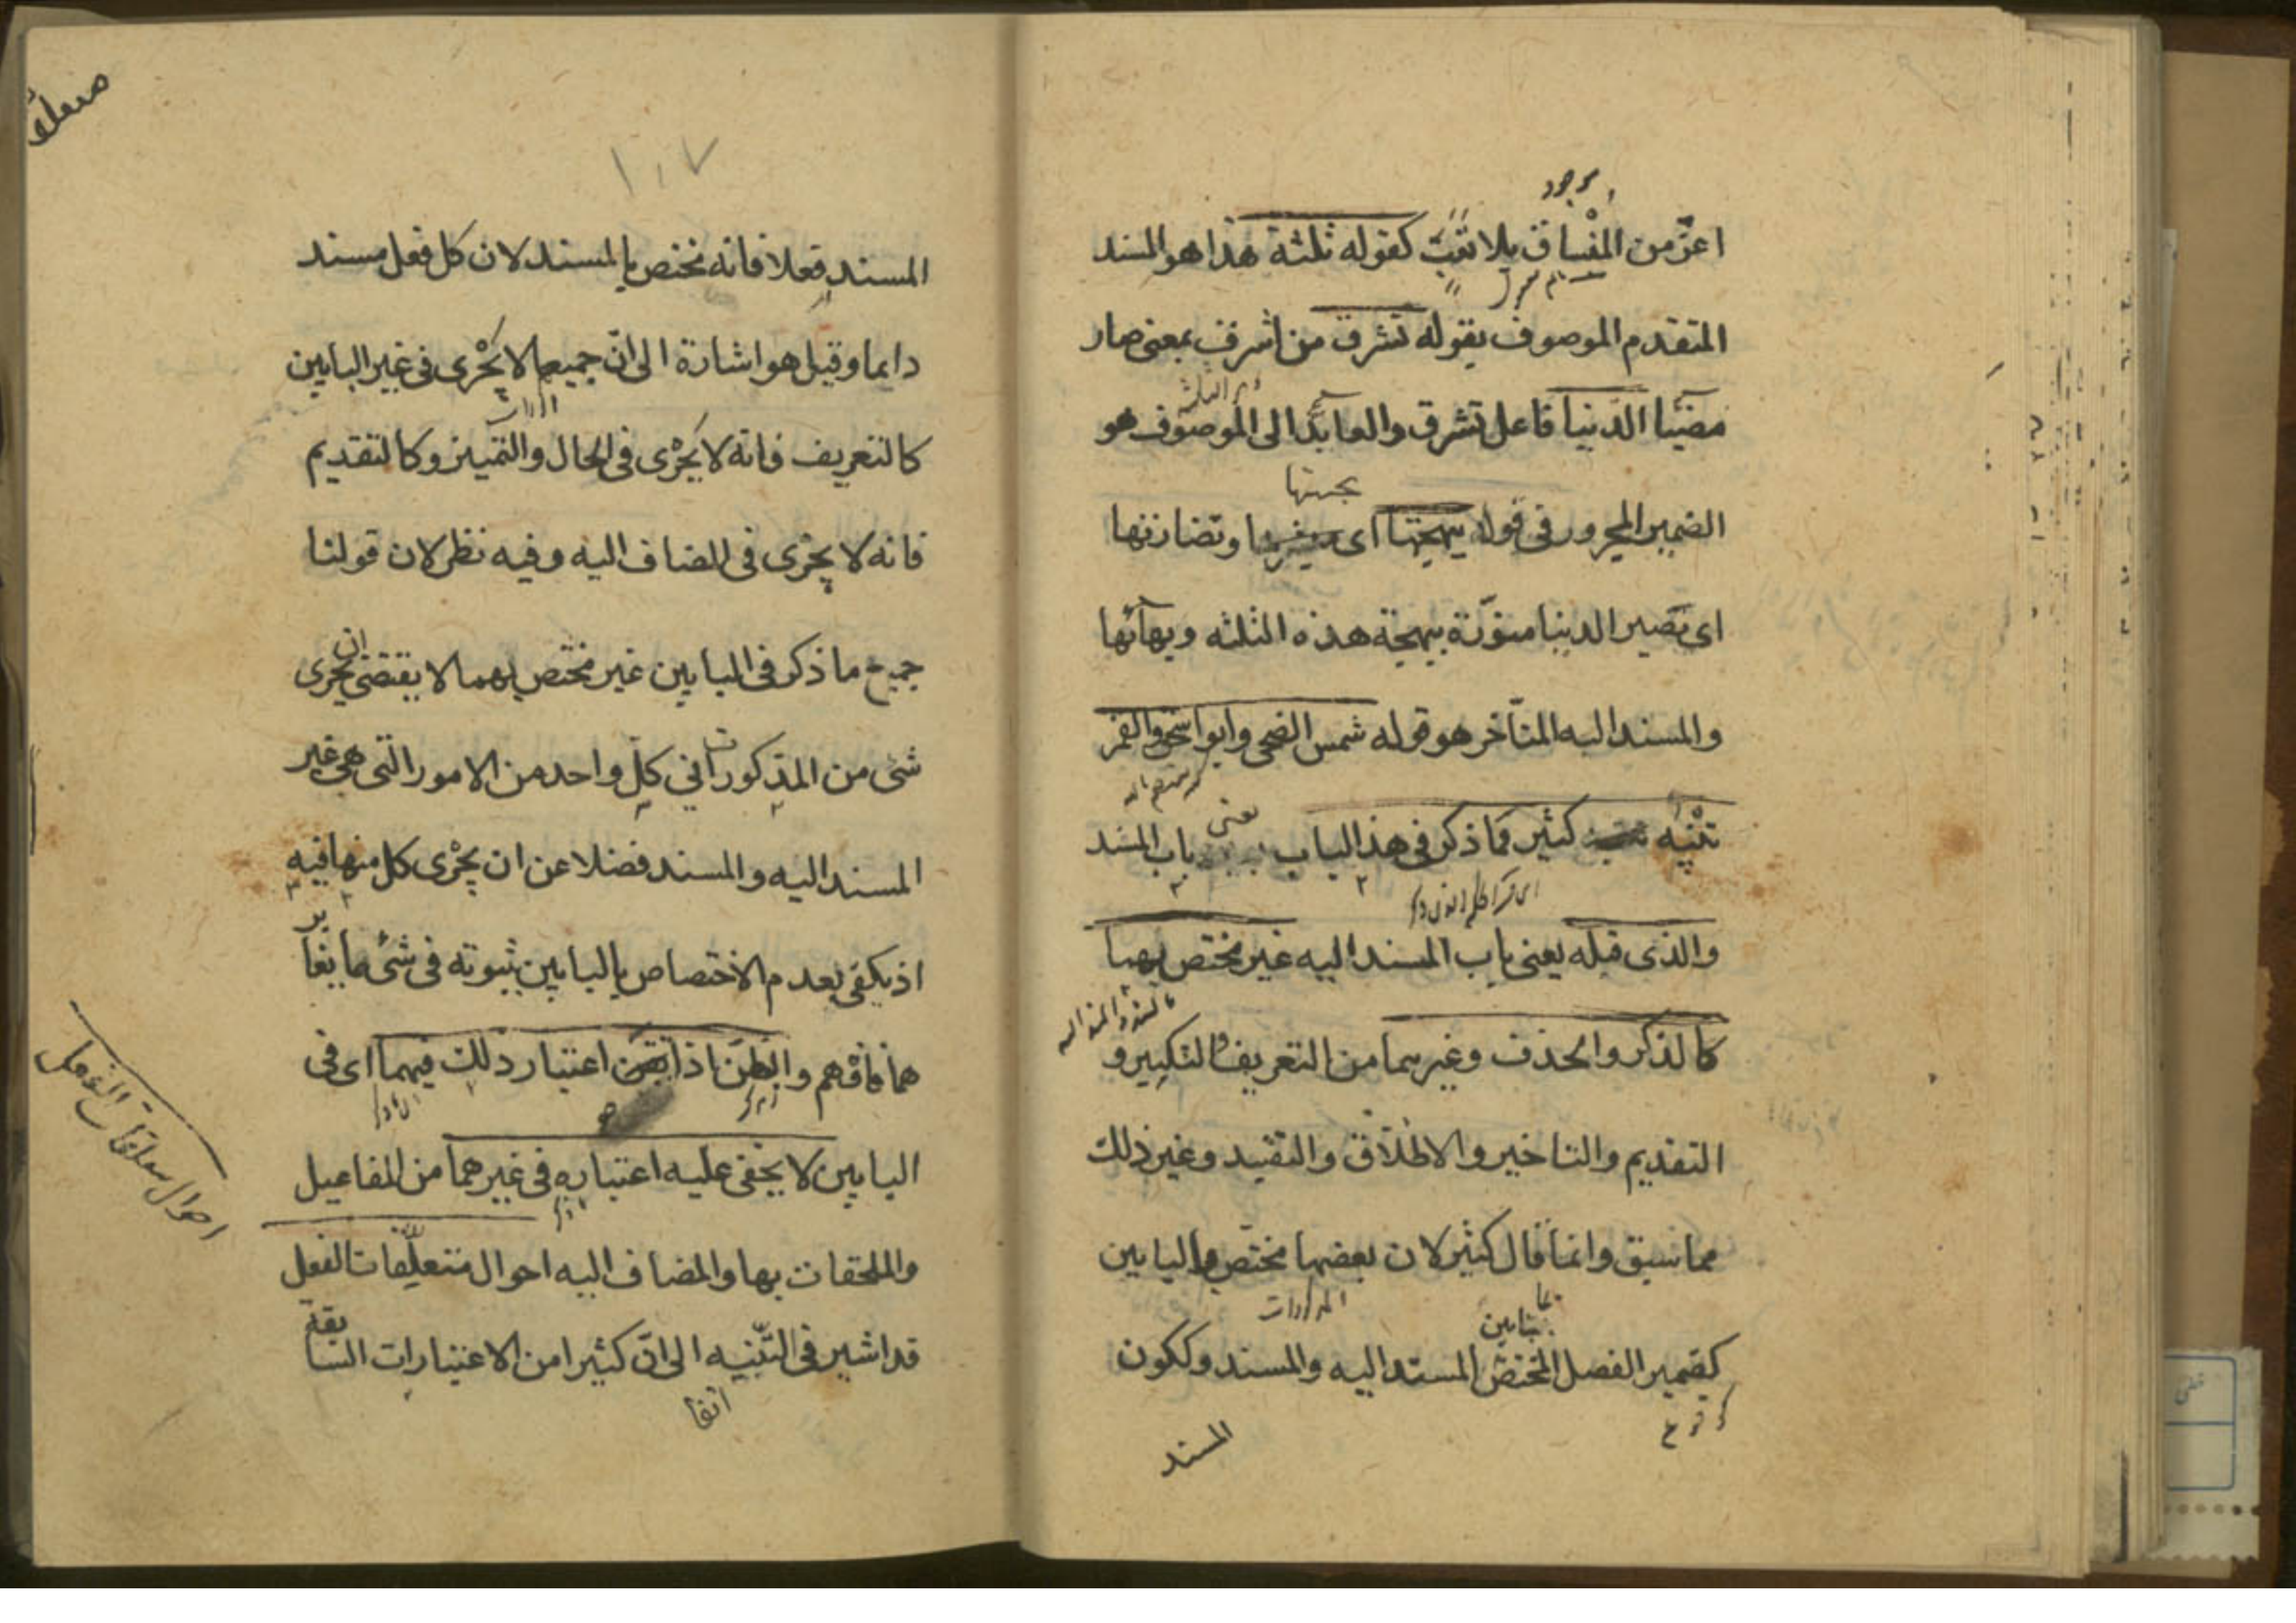 موجود
اعزّ من المفساق بلا تعب كقوله ثلثة هذا هو المسند
المتقدم الموصوف بقوله تشرق من اشرق بمعنى صار
مضيئا الدنيا فاعل تشرق والعائد الى الموصوف هو
بحسنها
الضمير المجرور فى قوله ببهجتها اى وتضارتها
اى تصير الدنيا منوّرة ببهجة هذه الثلثه وبهائها
والمسند اليه المتأخر هو قوله شمس الضحى وابو اسحق والقمر
تنبيه كثير مما ذكر فى هذا الباب يعنى باب المسند
والذى قبله يعنى باب المسند اليه غير مختص بهما
كالذكر والحذف وغيرهما من التعريف والتنكير و
التقديم والتاخير والاطلاق والتقييد وغير ذلك
مما سبق وانما قال كثير لان بعضها مختص بالبابين
كضمير الفصل المختص بما بين المسند اليه والمسند وككون
المسند
١٠٧
المسند فعلا فانه مختص بالمسند لان كل فعل مسند
دايما وقيل هو اشارة الى انّ جميعها لا يجرى فى غير البابين
كالتعريف فانه لا يجرى فى الحال والتمييز وكالتقديم
فانه لا يجرى فى المضاف اليه وفيه نظر لان قولنا
جميع ما ذكر فى البابين غير مختص بهما لا يقتضى ان يجرى
شئ من المذكورات فى كل واحد من الامور التى هى غير
المسند اليه والمسند فضلا عن ان يجرى كل منها فيه
اذ يكفى بعدم الاختصاص بالبابين ثبوته فى شئ ما يغاير
هما فافهم والفطن اذا اتقن اعتبار ذلك فيهما اى فى
البابين لا يخفى عليه اعتباره فى غيرهما من المفاعيل
والملحقات بها والمضاف اليه احوال متعلّقات الفعل
قد اشير فى التّنبيه الى انّ كثيرا من الاعتبارات السابقة
انفا
احوال متعلقات الفعل